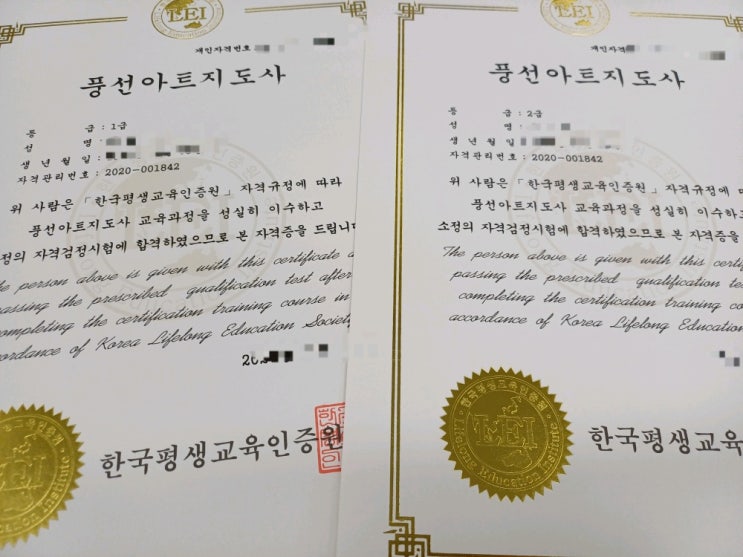 LEI
개인자격번호
풍선아트지도사
등 급 : 1급
성 명 :
생 년 월 일 :
자격관리번호 : 2020-001842
위 사람은 「한국평생교육인증원」 자격규정에 따라
풍선아트지도사 교육과정을 성실히 이수하고
정의 자격검정시험에 합격하였으므로 본 자격증을 드립니다
The person above is given with this certificate a
passing the prescribed qualification test after
completing the certification training course in
ordance of Korea Lifelong Education Society
20
한국평생교육인증원
LEI
LEI
개인자격
풍선아트지도사
등 급 : 2급
성 명 :
생 년 월 일 :
자격관리번호 : 2020-001842
위 사람은 「한국평생교육인증원」 자격규정에 따
풍선아트지도사 교육과정을 성실히 이수하고
소정의 자격검정시험에 합격하였으므로 본 자격증을
The person above is given with this certifica
passing the prescribed qualification te
completing the certification training co
accordance of Korea Lifelong Education
한국평생교육
한국평생교육인증원
LEI
Lifelong Education Institute